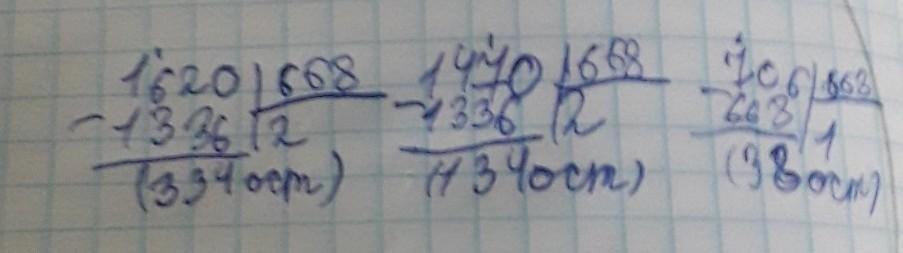 1620 668
-1336 2
(334 ост)
1470 668
-1336 2
(134 ост)
706 668
-668 1
(38 ост)